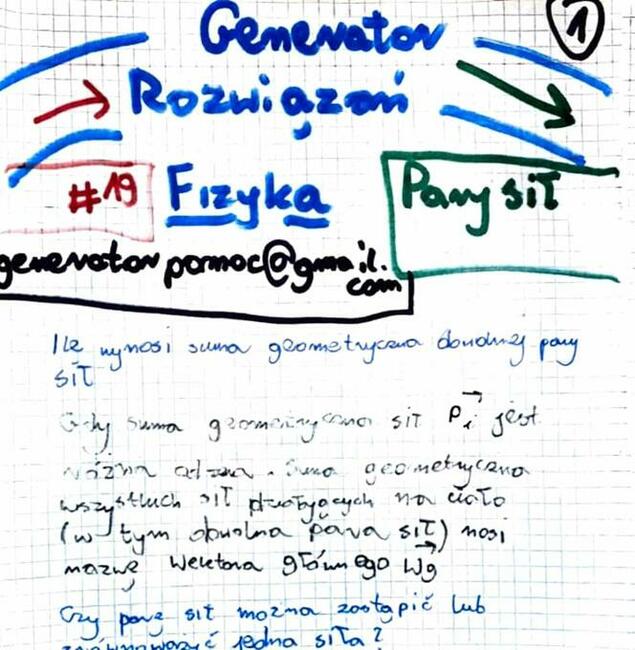 1
Generator
Rozwiązań
#19 Fizyka Pary sił
generatorpomoc@gmail.
com
Ile wynosi suma geometryczna dowolnej pary
sił
Gdy suma geometryczna sił Pi jest
różna od zera. Suma geometryczna
wszystkich sił działających na ciało
(w tym dowolna para sił) nosi
nazwę Wektora głównego Wg
Czy parę sił można zastąpić lub
zrównoważyć jedną siłą?